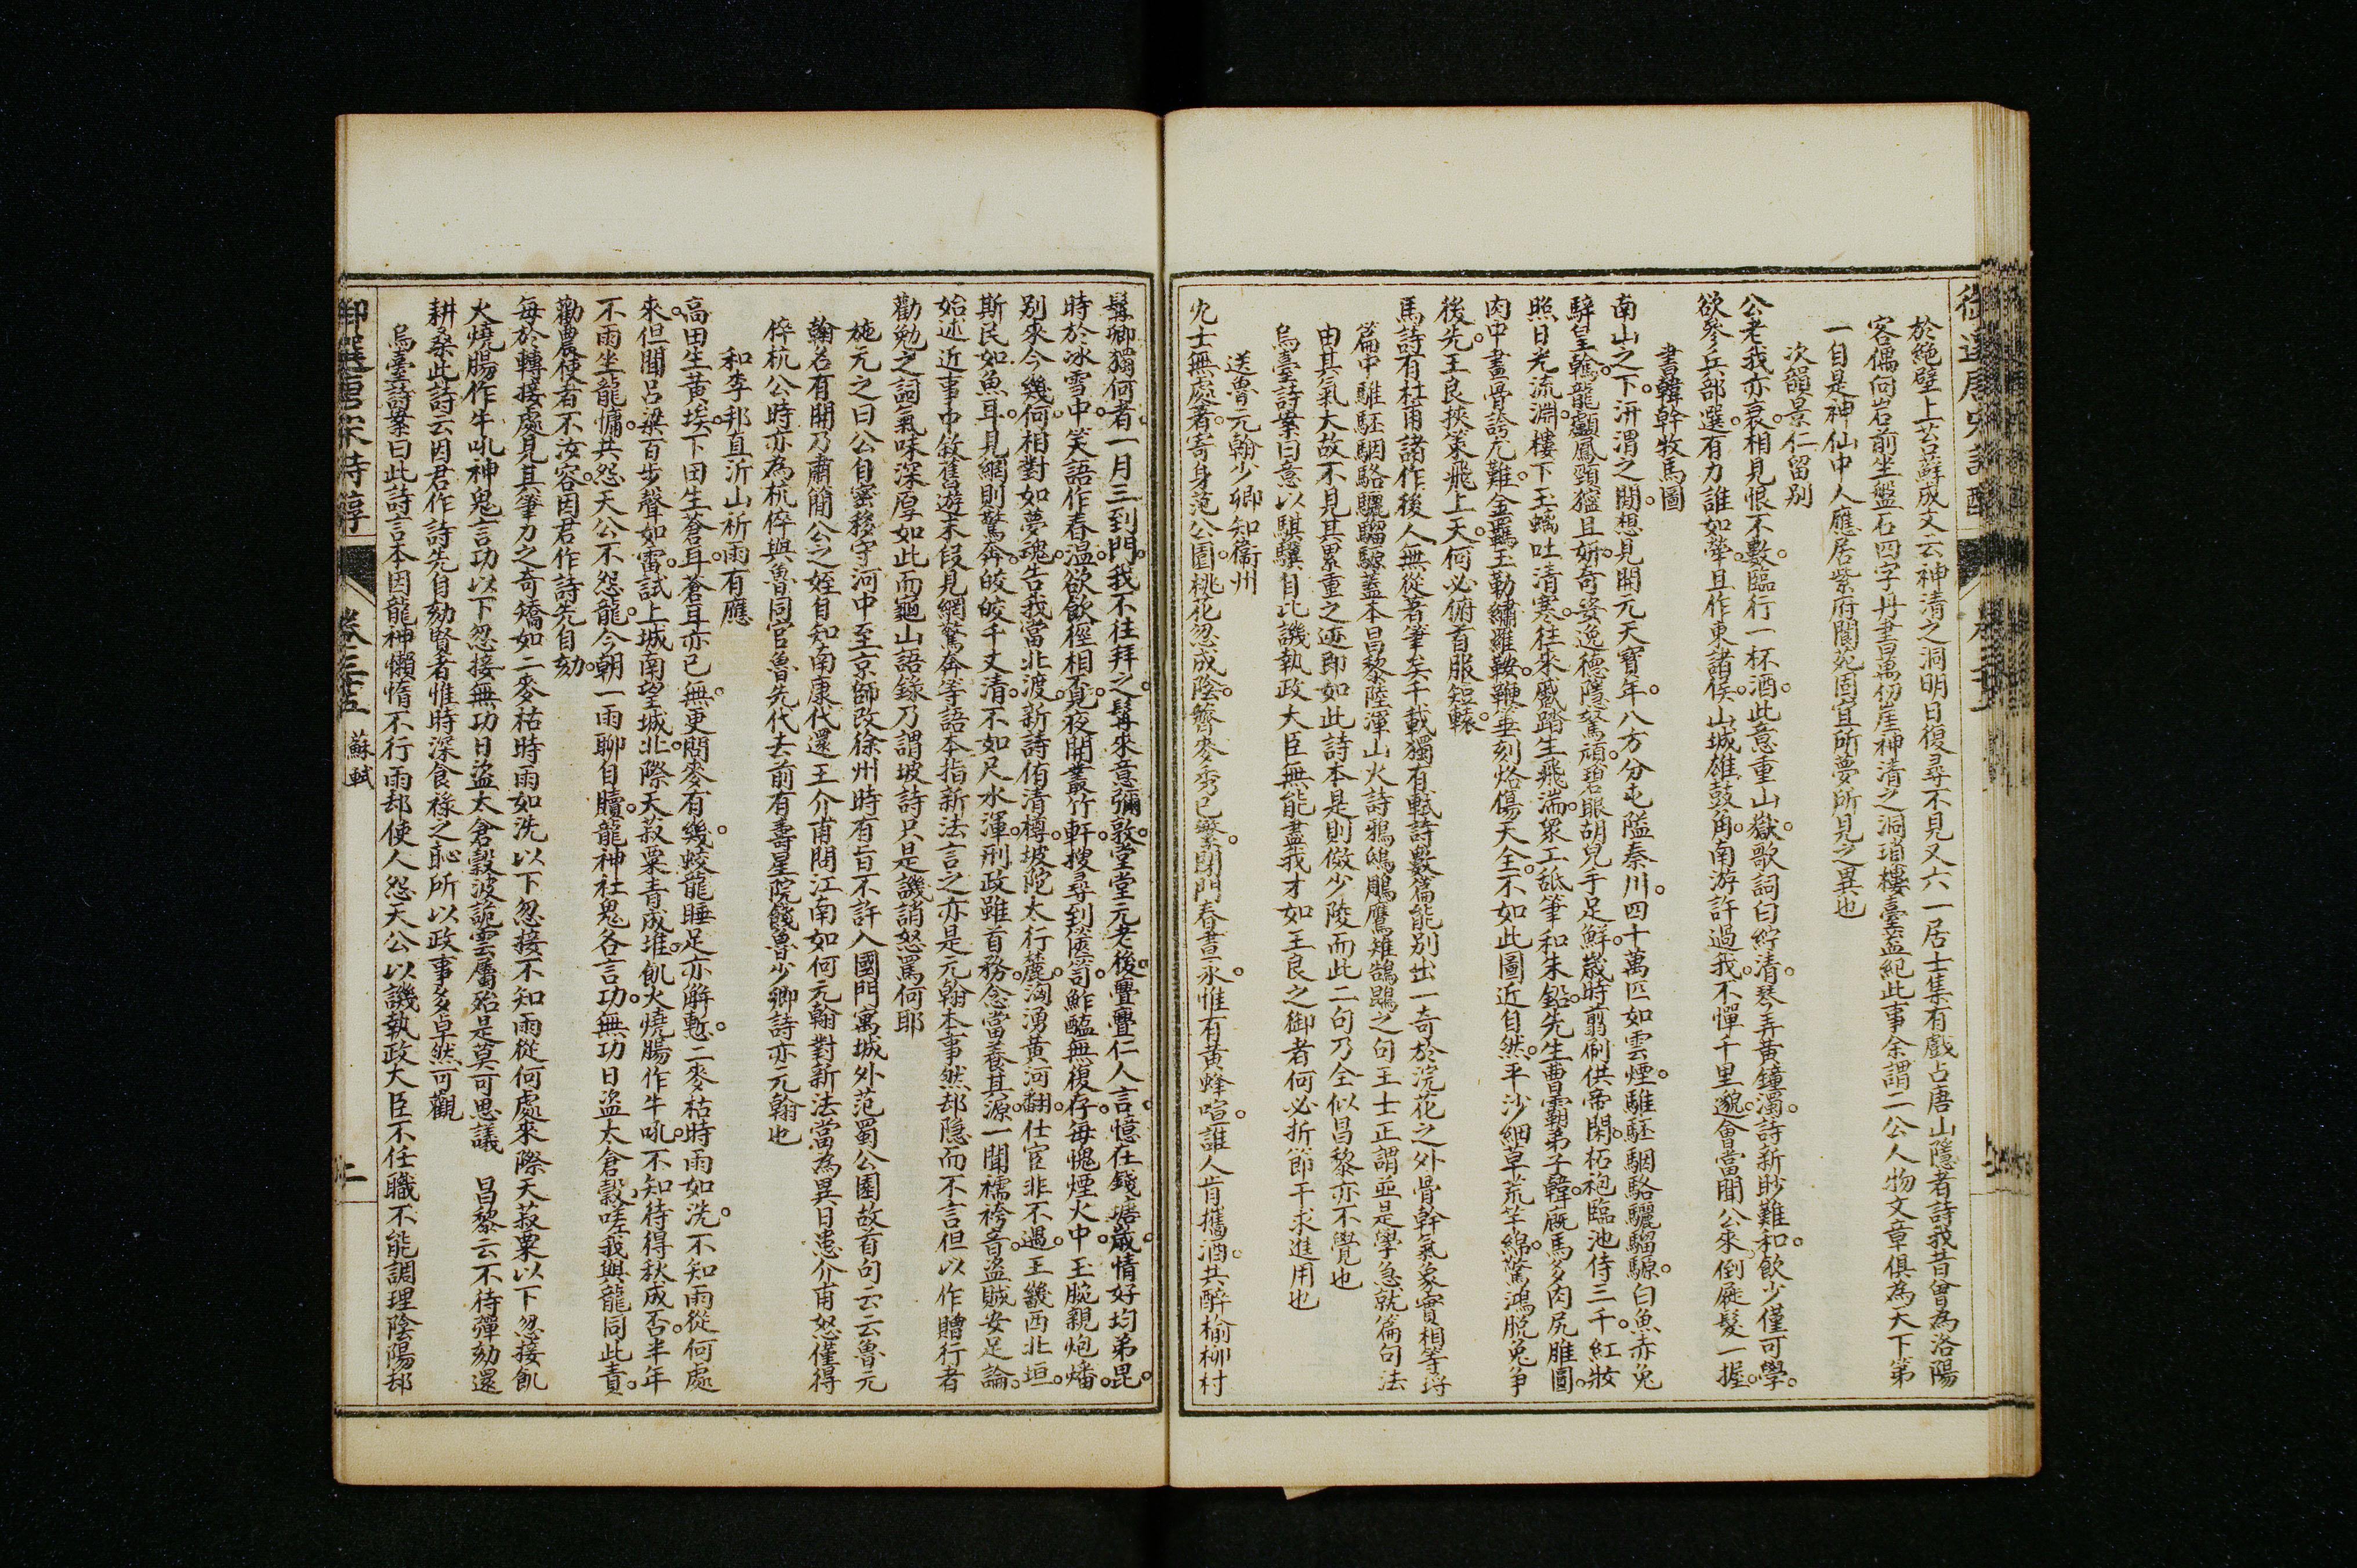 於絶壁上苔蘚成文云神清之洞明日復尋不見又六一居士集有戲占唐山隱者詩我昔曾為洛陽
客偶向岩前坐盤石四字丹書萬仞崖神清之洞瑣樓臺蓋紀此事余謂二公人物文章俱為天下第
一自是神仙中人應居紫府閬苑固宜所夢所見之異也
次韻景仁留别
公老我亦衰相見恨不數臨行一杯酒此意重山嶽歌詞白紵清琴弄黃鐘濁詩新眇難和飲少僅可學
欲參兵部選有力誰如犖且作東諸侯山城雄鼓角南游許過我不憚千里邈會當聞公來倒屣髮一握
書韓幹牧馬圖
南山之下汧渭之間想見開元天寶年八方分屯隘秦川四十萬匹如雲煙騅駓駰駱驪騮騵白魚赤兔
騂皇鶾龍顱鳳頸獰且妍奇姿逸德隱駑頑碧眼胡兒手足鮮歲時翦刷供帝閑柘袍臨池侍三千紅妝
照日光流淵樓下玉螭吐清寒往來蹙踏生飛湍衆工舐筆和朱鉛先生曹霸弟子韓廐馬多肉尻脽圓
肉中畫骨誇尤難金羈玉勒繡羅鞍鞭箠刻烙傷天全不如此圖近自然平沙細草荒芊綿驚鴻脫兔爭
後先王良挾策飛上天何必俯首服短轅
馬詩有杜甫諸作後人無從著筆矣千載獨有軾詩數篇能别出一奇於浣花之外骨幹氣象實相等埒
篇中騅駓駰駱驪騮騵蓋本昌黎陸渾山火詩鴉鴟鵰鷹雉鵠鵾之句王士正謂並是學急就篇句法
由其氣大故不見其累重之迹即如此詩本是則倣少陵而此二句乃全似昌黎亦不覺也
烏臺詩案曰意以騏驥自比譏執政大臣無能盡我才如王良之御者何必折節干求進用也
送魯元翰少卿知衞州
冗士無處著寄身范公園桃花忽成陰薺麥秀已繁閉門春晝永惟有黃蜂喧誰人肯攜酒共醉榆柳村
髯卿獨何者一月三到門我不往拜之髯來意彌敦堂堂元老後亹亹仁人言憶在錢塘歲情好均弟昆
時於冰雪中笑語作春温欲飲徑相覓夜開叢竹軒搜尋到篋笥鮓醢無復存每愧煙火中玉腕親炮燔
别來今幾何相對如夢魂告我當北渡新詩侑清樽坡陀太行麓洶湧黃河翻仕宦非不遇王畿西北垣
斯民如魚耳見網則驚奔皎皎千丈清不如尺水渾刑政雖首務念當養其源一聞襦袴音盜賊安足論
始述近事中敘舊遊末段見網驚奔等語本指新法言之亦是元翰本事然却隐而不言但以作贈行者
勸勉之詞氣味深厚如此而龜山語錄乃謂坡詩只是譏誚怒罵何耶
施元之曰公自密移守河中至京師改徐州時有旨不許入國門寓城外范蜀公園故首句云云魯元
翰名有開乃肅簡公之姪自知南康代還王介甫問江南如何元翰對新法當為異日患介甫怒僅得
倅杭公時亦為杭倅與魯同官魯先代去前有壽星院餞魯少卿詩亦元翰也
和李邦直沂山祈雨有應
高田生黃埃下田生蒼耳蒼耳亦已無更問麥有幾蛟龍睡足亦解慙二麥枯時雨如洗不知雨從何處
來但聞呂梁百步聲如雷試上城南望城北際天菽粟青成堆飢火燒腸作牛吼不知待得秋成否半年
不雨坐龍慵共怨天公不怨龍今朝一雨聊自贖龍神社鬼各言功無功日盜太倉穀嗟我與龍同此責
勸農使者不汝容因君作詩先自劾
每於轉接處見其筆力之奇矯如二麥枯時雨如洗以下忽接不知雨從何處來際天菽粟以下忽接飢
火燒腸作牛吼神鬼言功以下忽接無功日盜太倉穀波詭雲屬殆是莫可思議　昌黎云不待彈劾還
耕桑此詩云因君作詩先自劾賢者惟時深食祿之恥所以政事多卓然可觀
烏臺詩案曰此詩言本因龍神懶惰不行雨却使人怨天公以譏執政大臣不任職不能調理陰陽却
御選唐宋詩醇　卷三十五　蘇軾